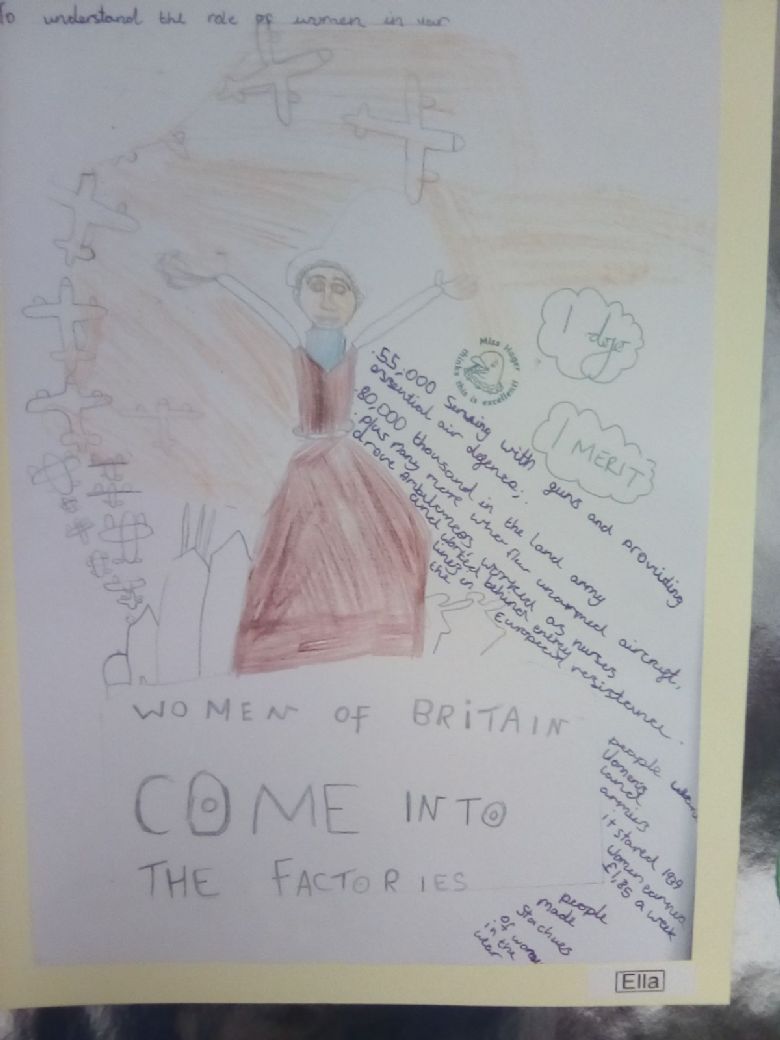 To understand the role of women in war
1 dojo
Miss Hager
think
this is excellent!
1 MERIT
. 55,000 serving with guns and providing
essential air defence;
. 80,000 thousand in the land army
. plus many more who flew unarmed aircraft,
drove ambulances, worked as nurses
and worked behind enemy
lines in European resistance.
the
WOMEN OF BRITAIN
COME INTO
THE FACTORIES
people
Women's
Land
armies
it stared 1939
Women earned
£1,85 a week
people
made
Stachues
of women
in the
war
Ella